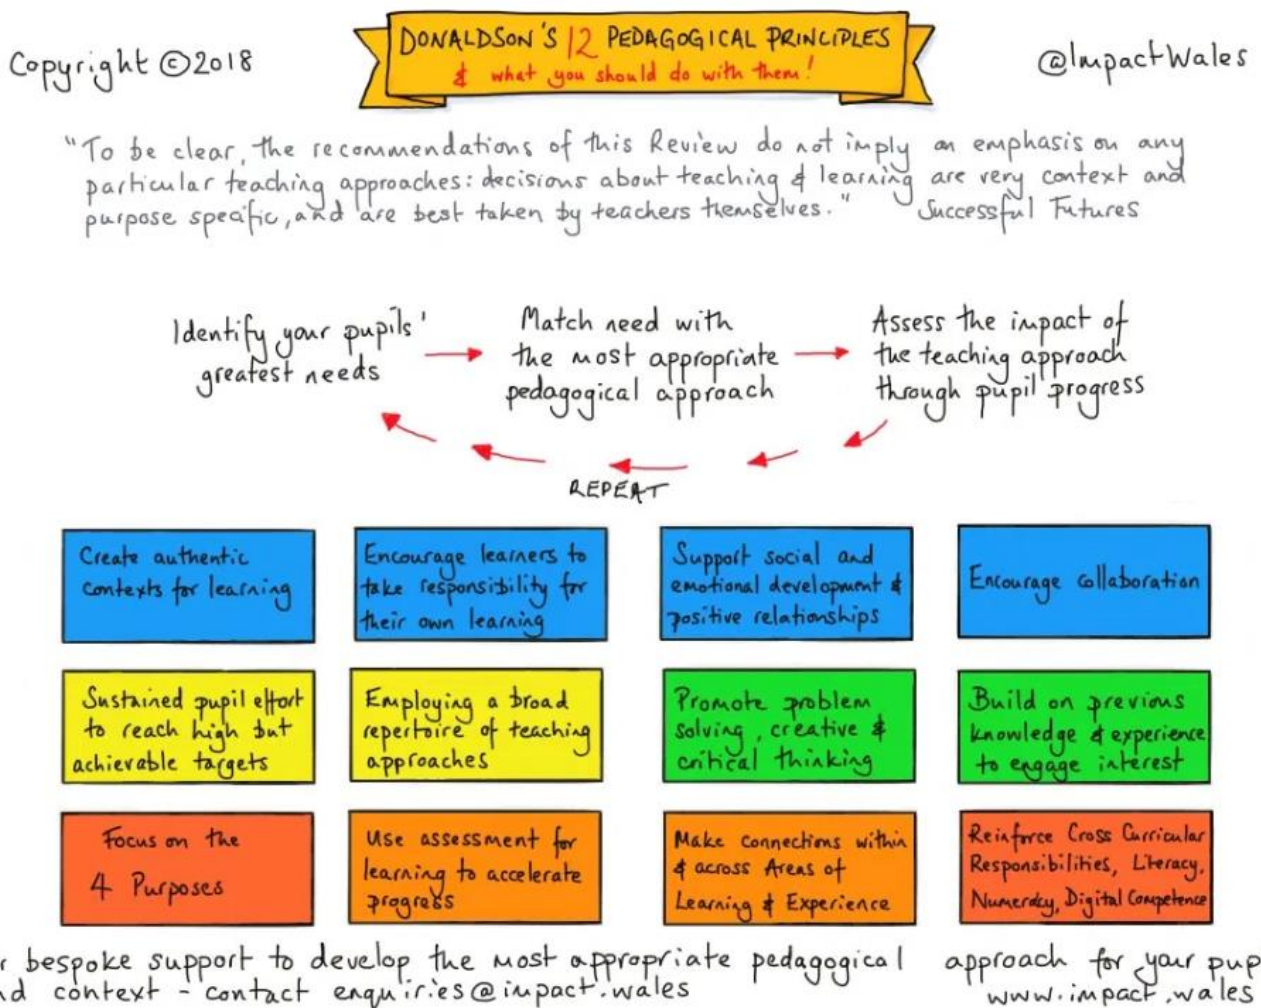 Copyright ©2018
DONALDSON'S 12 PEDAGOGICAL PRINCIPLES
& what you should do with them!
@ImpactWales
"To be clear, the recommendations of this Review do not imply an emphasis on any
particular teaching approaches: decisions about teaching & learning are very context and
purpose specific, and are best taken by teachers themselves."
Successful Futures
Identify your pupils'
greatest needs
Match need with
the most appropriate
pedagogical approach
Assess the impact of
the teaching approach
through pupil progress
REPEAT
Create authentic
contexts for learning
Encourage learners to
take responsibility for
their own learning
Support social and
emotional development &
positive relationships
Encourage collaboration
Sustained pupil effort
to reach high but
achievable targets
Employing a broad
repertoire of teaching
approaches
Promote problem
solving, creative &
critical thinking
Build on previous
knowledge & experience
to engage interest
Focus on the
4 Purposes
Use assessment for
learning to accelerate
progress
Make connections within
& across Areas of
Learning & Experience
Reinforce Cross Curricular
Responsibilities, Literacy,
Numeracy, Digital Competence
bespoke support to develop the most appropriate pedagogical approach for your
context - contact enquiries@impact.wales www.impact.wales